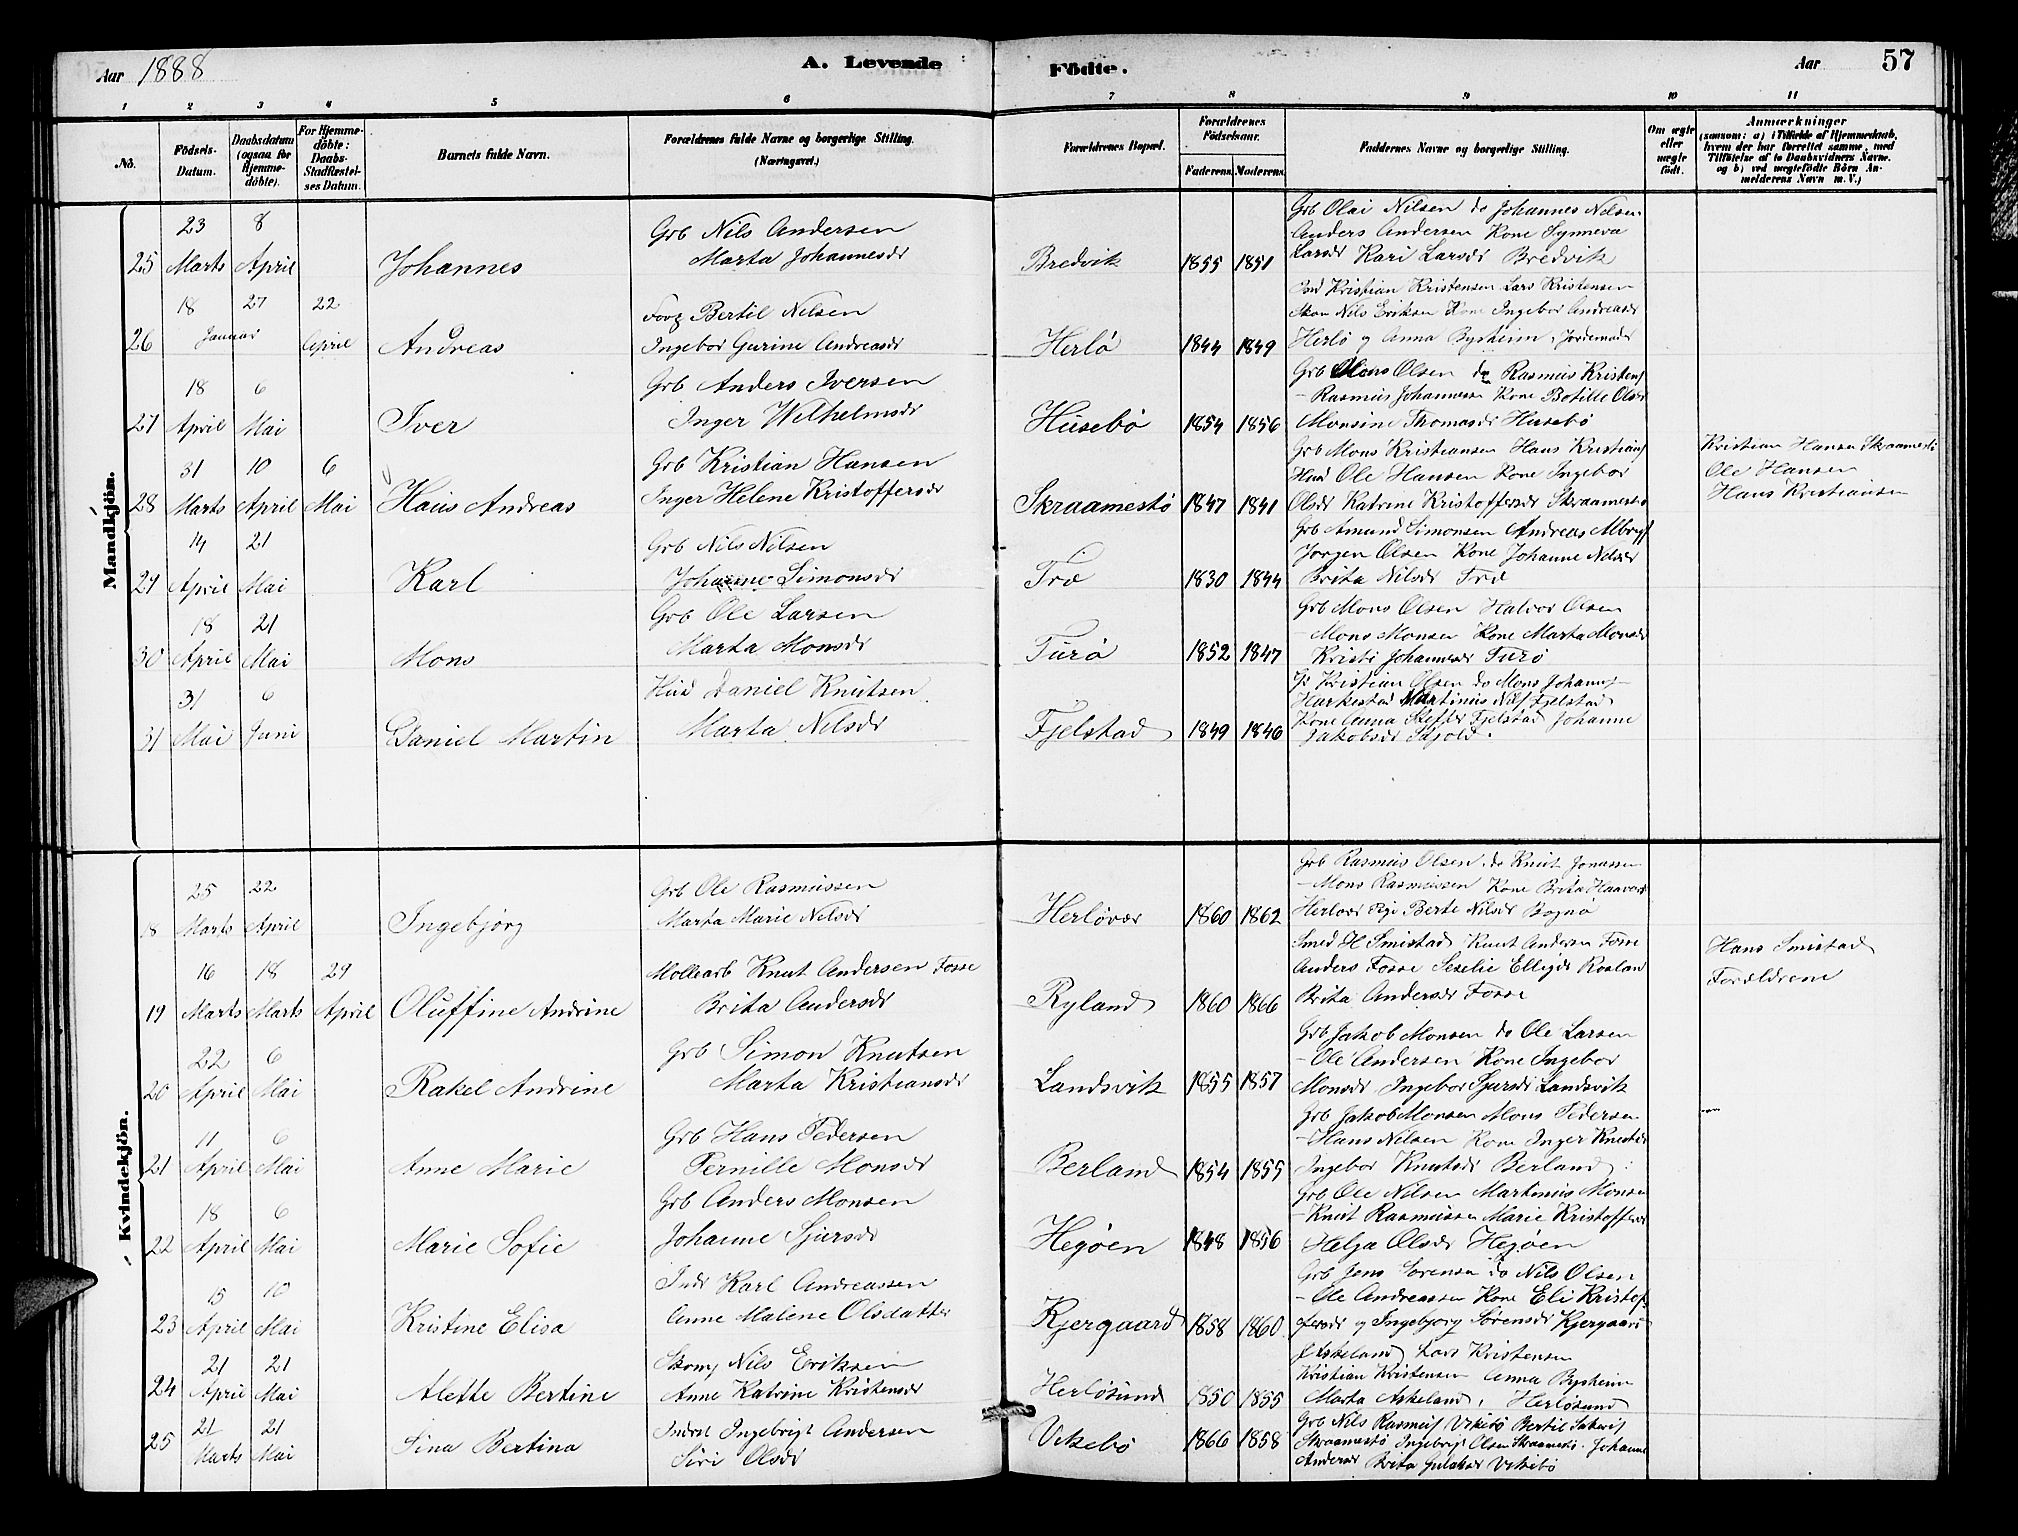 Aar 1888
A. Levende Födte.
Aar 57
1 2 3 4 5 6 7 8 9 10 11
No.
Födsels-Datum.
Daabsdatum (ogsaa for Hjemmedöbte).
For Hjemmedöbte: Daabs-Stadfæstelses Datum.
Barnets fulde Navn.
Forældrenes fulde Navne og borgerlige Stilling. (Næringsvei.)
Forældrenes Bopæl.
Forældrenes Födselsaar.
Faderens. Moderens.
Faddernes Navne og borgerlige Stilling.
Om ægte eller uægte födt.
Anmærkninger
(saasom: a) i Tilfælde af Hjemmedaab, hvem der har forrettet samme, med Tilföielse af to Daabsvidners Navne. og b) ved uægtefödte Börn Anmelderens Navn m. V.)
Mandkjön.
23 8 Grb Nils Andersen Grb Olai Nilsen do Johannes Nilsen
Anders Andersen Kone Synneva
25 Marts April Johannes Marta Johannesdr Bredvik 1855 1851 Larsdr Kari Larsdr Bredvik
18 27 22 Bertil Nilsen Kristian Kristensen Lars Kristensen
Skom Nils Eriksen Kone Ingebor Andreasdr
26 Januar April Andreas Ingebor Gurine Andreasdr Herlö 1844 1849 Herlö og Anna Bysheim Jordemoder
18 6 Grb Anders Iversen Grb Mons Olsen do Rasmus Kristens
- Rasmus Johannessen Kone Botille Olsdr
27 April Mai Iver Inger Wilhelmsdr Husebö 1854 1856 Monsine Thomasdr Husebö
31 10 6 Grb Kristian Hansen Grb Mons Kristiansen Hans Kristians Kristian Hansen Skraamestö
Husm Ole Hansen Kone Ingebor Ole Hansen
28 Marts April Mai Hans Andreas Inger Helene Kristoffersdr Skraamestö 1847 1841 Olsdr Katrine Kristoffersdr Skraamestö Hans Kristiansen
14 21 Grb Nils Nilsen Grb Amund Simonsen Andreas
Jorgen Olsen Kone Johanne Nilsdr
29 April Mai Karl Johanne Simonsdr Træ 1830 1844 Brita Nilsdr Træ
18 21 Grb Ole Larsen Grb Mons Olsen Halvor Olsen
- Mons Monsen Kone Marta Monsdr
30 April Mai Mons Marta Monsdr Turö 1852 1847 Kristi Johannesdr Turö
31 6 Daniel Knutsen Kristian Olsen do Mons Johanns
Harkestad Martinus Nils Fjelstad
Kone Anna Fjelstad Johanne
31 Mai Juni Daniel Martin Marta Nilsdr Fjelstad 1849 1846 Jakobsdr Skjold.
Kvindekjön.
25 22 Grb Ole Rasmussen Grb Rasmus Olsen do Knut Jonassen
- Mons Rasmussen Kone Brita Haavards
18 Marts April Ingebjörg Marta Marie Nilsdr Herlövær 1860 1862 Herlövær Pige Berte Nilsdr Bognö
16 18 29 Möllearb Knut Andersen Fosse Smed H Smistad Knut Andersen Fosse Hans Smistad
Anders Fosse Seselie Ellingdr Rosland Forældrene
19 Marts Marts April Oluffine Andrine Brita Andersdr Ryland 1860 1866 Brita Andersdr Fosse
22 6 Grb Simon Knutsen Grb Jakob Monsen do Ole Larsen
- Ole Andersen Kone Ingebor
20 April Mai Rakel Andrine Marta Kristiansdr Landsvik 1855 1857 Monsdr Ingebor Sjursdr Landsvik
11 6 Grb Hans Pedersen Grb Jakob Monsen Mons Pedersen
- Hans Nilsen Kone Inger Knutsdr
21 April Mai Anne Marie Pernille Monsdr Berland 1854 1855 Ingebor Knutsdr Berland
18 6 Grb Anders Monsen Grb Ole Nilsen Martinius Monsen
- Knut Rasmussen Marie Kristoffersdr
22 April Mai Marie Sofie Johanne Sjursdr Hegöen 1848 1856 Helja Olsdr Hegöen
15 10 Indr Karl Andreassen Grb Jens Sorensen do Nils Olsen
- Ole Andreassen Kone Eli Kristof-
23 April Mai Kristine Elisa Anne Malene Olsdatter Kjergaard 1858 1860 fersdr og Ingebjorg Sörensdr Kjergaard
21 21 Skom Nils Eriksen J Askeland Lars Kristensen
Kristian Kristensen Anna Bysheim
24 April Mai Alette Bertine Anne Katrine Kristensdr Herlösund 1850 1855 Marta Askeland, Herlösund
21 21 Inderst Ingebrigt Andersen Grb Nils Rasmus Vikebö Bertil
25 Sina Bertina Vikebö 1866 1858 Skraamestö Ingebrigt Olsen Skraamestö. Johanne
Marts Mai Siri Olsdr Andersdr Brita Vikebö